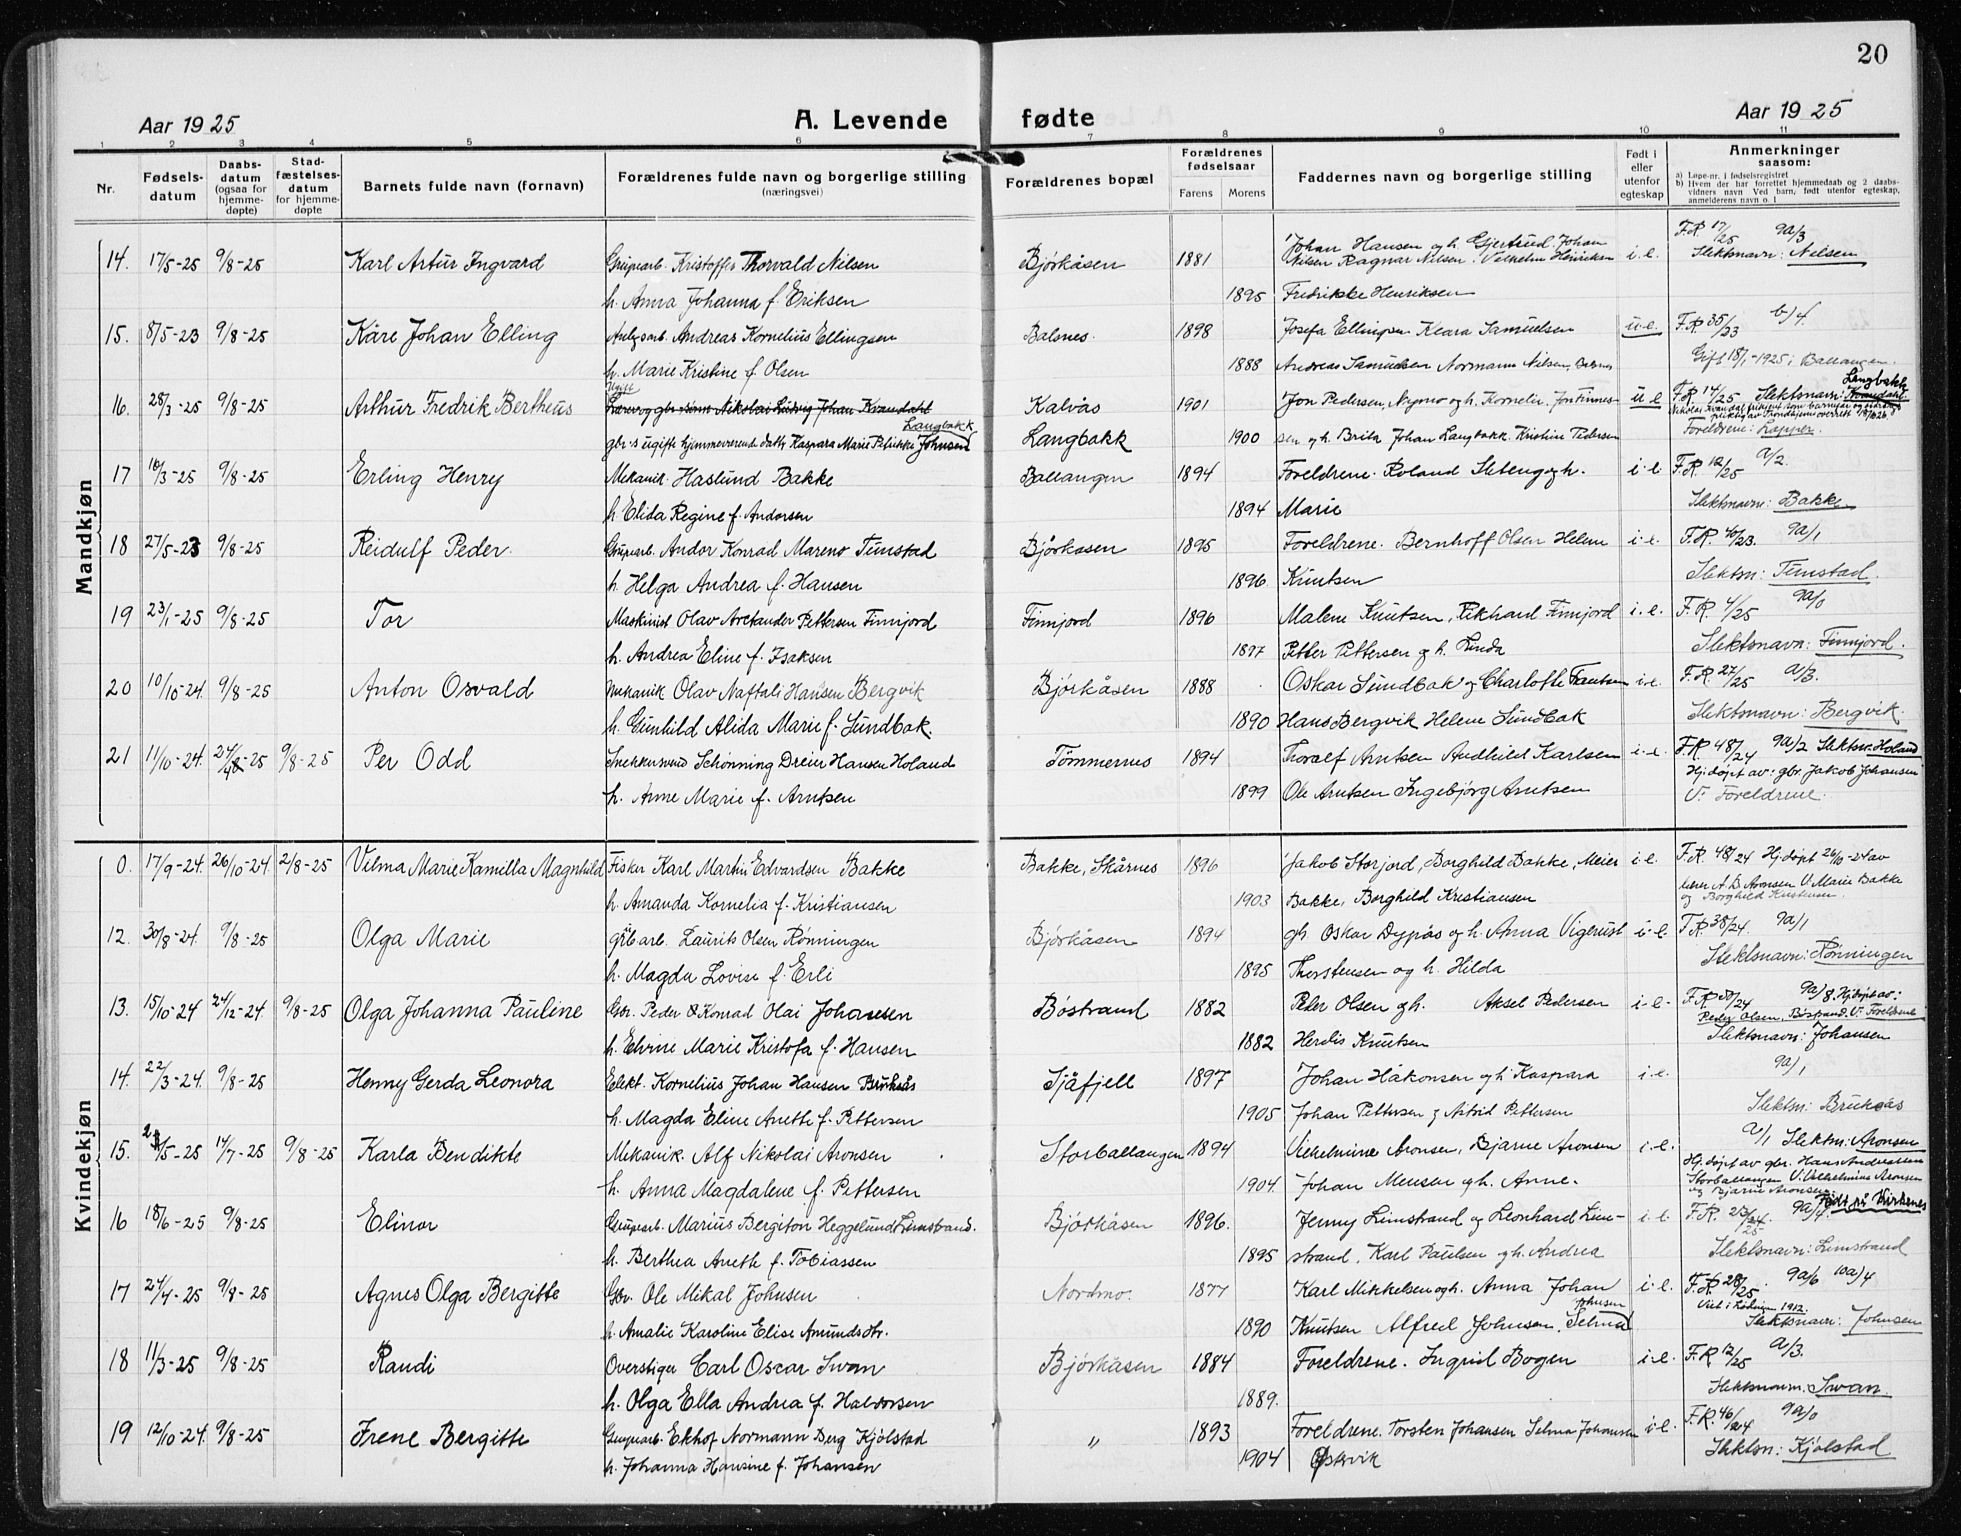 20
Aar 1925 A. Levende fødte Aar 1925
1 2 3 4 5 6 7 8 9 10 11
Nr. Fødsels-datum Daabs-datum (ogsaa for hjemme-døpte) Stad-fæstelses-datum for hjemme-døpte Barnets fulde navn (fornavn) Forældrenes fulde navn og borgerlige stilling (næringsvei) Forældrenes bopæl Forældrenes fødselsaar Farens Morens Faddernes navn og borgerlige stilling Født i eller utenfor egteskap Anmerkninger saasom:
a) Løpe-nr. i fødselsregistret
b) Hvem der har forrettet hjemmedaab og 2 daabs-vidners navn Ved barn, født utenfor egteskap, anmelderens navn o. l
Mandkjøn
14. 17/5-25 9/8-25 Karl Artur Ingvard Grupearb. Kristoffer Thorvald Nilsen Bjørkåsen 1881 Johan Hansen og h. Gjertrud. Johan Nilsen Ragnar Nilsen. Vilhelm Henriksen i.e. F.R. 17/25 9a/3 Slektsnavn: Nilsen
h. Anna Johanna f. Eriksen 1895 Fredrikke Henriksen
15. 8/5-23 9/8-25 Kåre Johan Elling Anlgsarb. Andreas Kornelius Ellingsen Balsnes. 1898 Josefa Ellingsen Klara Samuelsen u.e. F.R. 35/23 b)4.
h. Marie Kristine f. Olsen 1888 Andreas Samuelsen Normann Nilsen, Balsnes Gift 18/1-1925 i Ballangen.
16. 28/3-25 9/8-25 Arthur Fredrik Bertheus Ugift Nikolai Ludvig Johan Kvandahl Kalvås 1901 Jon Pedersen, Nymo og h. Kornelie. Jon Finnes- u.e F.R. 14/25 Slektsnavn: Langbakk Kvandahl.
gbr.s ugifte hjemmeværende datter Kaspara Marie Petrikke Johnsen Langbakk Langbakk 1900 sen og h. Brita Johan Langbakk. Kristine Pedersen Foreldrene: Lapper.
17 10/3-25 9/8-25 Erling Henry Mekanik. Haslund Bakke Ballangen 1894 Foreldrene. Roland Steteng og h. i.e F.R. 12/25 a/2.
h. Elida Regine f. Andorsen 1894 Marie Slektsnavn: Bakke
18 27/5-23 9/8-25 Reidulf Peder. Grupearb. Andor Konrad Mareno Timstad Bjørkåsen 1895 Foreldrene. Bernhoff Olsen Helene i.e. F.R. 40/23. 9a/1
h. Helga Andrea f. Hansen 1896. Knutsen Slektsn: Timstad.
19 23/1-25 9/8-25 Tor Maskinist Olav Arctander Pettersen Finnjord Finnjord 1896 Malene Knutsen, Rikhard Finnjord i.e. F.R. 4/25 9a/0
h. Andrea Eline f. Isaksen 1897 Petter Pettersen og h. Linda Slektsnavn: Finnjord.
20 10/10-24. 9/8-25 Anton Osvald Mekanik Olav Naftali Hansen Bergvik Bjørkåsen 1888 Oskar Sundbak og Charlotte Frantsen i.e. F.R. 27/25 a/3.
h. Gunhild Alida Marie f. Sundbak. 1890 Hans Bergvik Helene Sundbak Slektsnavn: Bergvik.
21 11/10-24. 24/-25 9/8-25 Per Odd Snekkersvend Schønning Dreier Hansen Holand Tømmernes 1894 Thoralf Arntsen Audhild Karlsen i.e. F.R. 48/24 9a/2 Slektsn. Holand
h. Anne Marie f. Arntsen 1899 Ole Arntsen Ingebjørg Arntsen Hj. døpt av: gbr. Jakob Johansen V. Foreldrene.
Kvindekjøn
0. 17/9-24. 26/10-24. 2/8-25 Vilma Marie Kamilla Magnhild Fisker Karl Martin Edvardsen Bakke Bakke, Skårnes 1896 Jakob Storjord, Borghild Bakke, Meier i.e F.R. 48/24 Hj. døpt 26/10-24 av
h. Amanda Kornelia f. Kristiansen 1903 Bakke, Borghild Kristiansen lærer A. B. Aronsen V. Marie Bakke og Borghild Kristensen.
12. 30/8-24. 9/8-25 Olga Marie grb arb. Laurits Olsen Rønningen Bjørkåsen 1894 gb. Oskar Dypås og h. Anna Vigerust i.e F.R. 38/24. 9a/1
h. Magda Lovise f. Erli 1895 Thorstensen og h. Hilda Slektsnavn: Rønningen
13. 15/10-24 24/12-24. 9/8-25 Olga Johanna Pauline Gbr. Peder & Konrad Olai Johansen Bøstrand 1882 Peder Olsen og h. Aksel Pedersen i.e. F.R. 50/24 9a/8. Hj. døpt av: Peder Olsen, Bøstrand. V. Foreldrene
h. Elvine Marie Kristofa f. Hansen 1882 Herdis Knutsen Slektsnavn: Johansen
14. 22/3-24. 9/8-25 Henny Gerda Leonora Elekt. Kornelius Johan Hansen Bruksås Sjåfjell 1897 Johan Håkonsen og h. Kaspara i.e. 9a/1
h. Magda Eline Anette f. Pettersen 1905 Johan Pettersen og Astrid Pettersen Slektsn: Bruksås
15. /5-25 14/7-25 9/8-25 Karla Bendikte Mekanik. Alf Nikolai Aronsen Storballangen 1894 Vilhelmine Aronsen, Bjarne Aronsen i.e. a/1 Slektsn: Aronsen
h. Anna Magdalene f. Pettersen 1904. Johan Monsen og h. Anne. Hj. døpt av gbr. Hans Andreassen Storballangen V. Vilhelmine Aronsen og Bjarne Aronsen
16 18/6-25 9/8-25 Elinor Grupearb. Marius Bergiton Heggelund Limstrand. Bjørkåsen 1896. Jenny Limstrand og Leonhard Lim- i.e F.R. 23/25. 9a/4. Født på Virkenes
h. Berthea Aneth f. Tobiassen 1895 strand, Karl Paulsen og h. Andrea Slektsnavn: Limstrand
17 24/4-25 9/8-25 Agnes Olga Bergitte Gbr. Ole Mikal Johnsen Nordmo. 1877 Karl Mikkelsen og h. Anna Johan i.e. F.R. 28/25 9a/6 10a)4 Viet i Lødingen 1912.
h. Amalie Karoline Elise Amundsdtr. 1890 Knutsen Alfred Johnsen. Selma Johnsen Slektsnavn: Johnsen
18 11/3-25 9/8-25 Randi Overstiger Carl Oscar Swan Bjørkåsen 1884 Foreldrene. Ingrid Bogen i.e. F.R. 12/25 a/3.
h. Olga Ella Andrea f. Haldorsen 1889. Slektsnavn. Swan.
19 12/10-24. 9/8-25 Irene Bergitte Grupearb. Ekhof Normann Berg Kjølstad " 1893 Foreldrene. Torsten Johansen Selma Johansen i.e. F.R. 46/1924 9a/0
h. Johanna Hansine f. Johansen 1904 Østvik Slektsn: Kjølstad